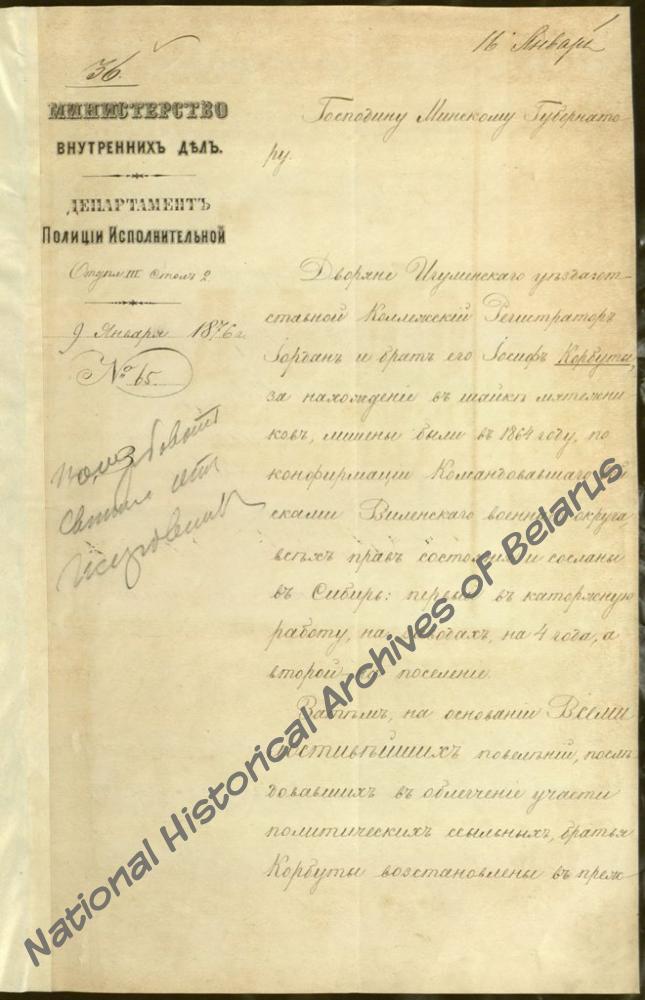 16 Января
36.
МИНИСТЕРСТВО
ВНУТРЕННИХЪ ДѢЛЪ.
ДЕПАРТАМЕНТЪ
ПОЛИЦІИ ИСПОЛНИТЕЛЬНОЙ
Отдѣл. III Столъ 2
9 Января 1876 г.
№ 65
Господину Минскому Губернато-
ру.
Дворяне Игуменскаго уѣзда: от-
ставной Коллежскій Регистраторъ
Іорданъ и братъ его Іосифъ Корбуты,
за нахожденіе въ шайкѣ мятежни
ковъ, лишены были въ 1864 году, по
конфирмаціи Командовавшаго
сками Виленскаго военнаго округа
всѣхъ правъ состоянія и сосланы
въ Сибирь: первый въ каторжную
работу, на заводахъ, на 4 года, а
второй на поселеніе.
Затѣмъ, на основаніи Всеми
лостивѣйшихъ повелѣній, послѣ
довавшихъ въ облегченіе участи
политическихъ ссыльныхъ, братья
Корбуты возстановлены въ преж
National Historical Archives of Belarus